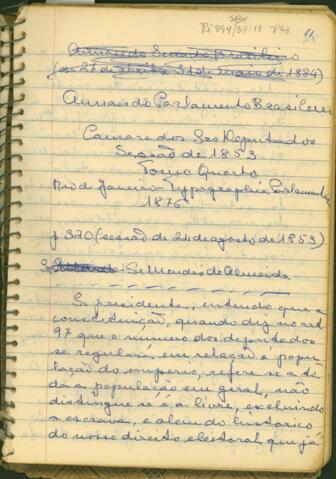 SBH
Pi 394 P93
Annaes do Senado Brasileiro
(de 27 de abril a 31 de maio de 1884)
Annaes do Parlamento Brasileiro
Camara dos Srs Deputados
Sessão de 1853
Tomo Quarto
Rio de Janeiro Typographia Parlamentar
1876
p 320 (sessão de 24 de agosto de 1853)
Sr Mendes de Almeida
Sr presidente, entendo que a
constituição, quando diz no art
97 que o numero dos deputados
se regulará em relação a popu
lação do imperio, refere-se a to
da a população em geral, não
distingue se é a livre, excluindo
a escrava, e alem do historico
do nosso direito eleitoral, que já